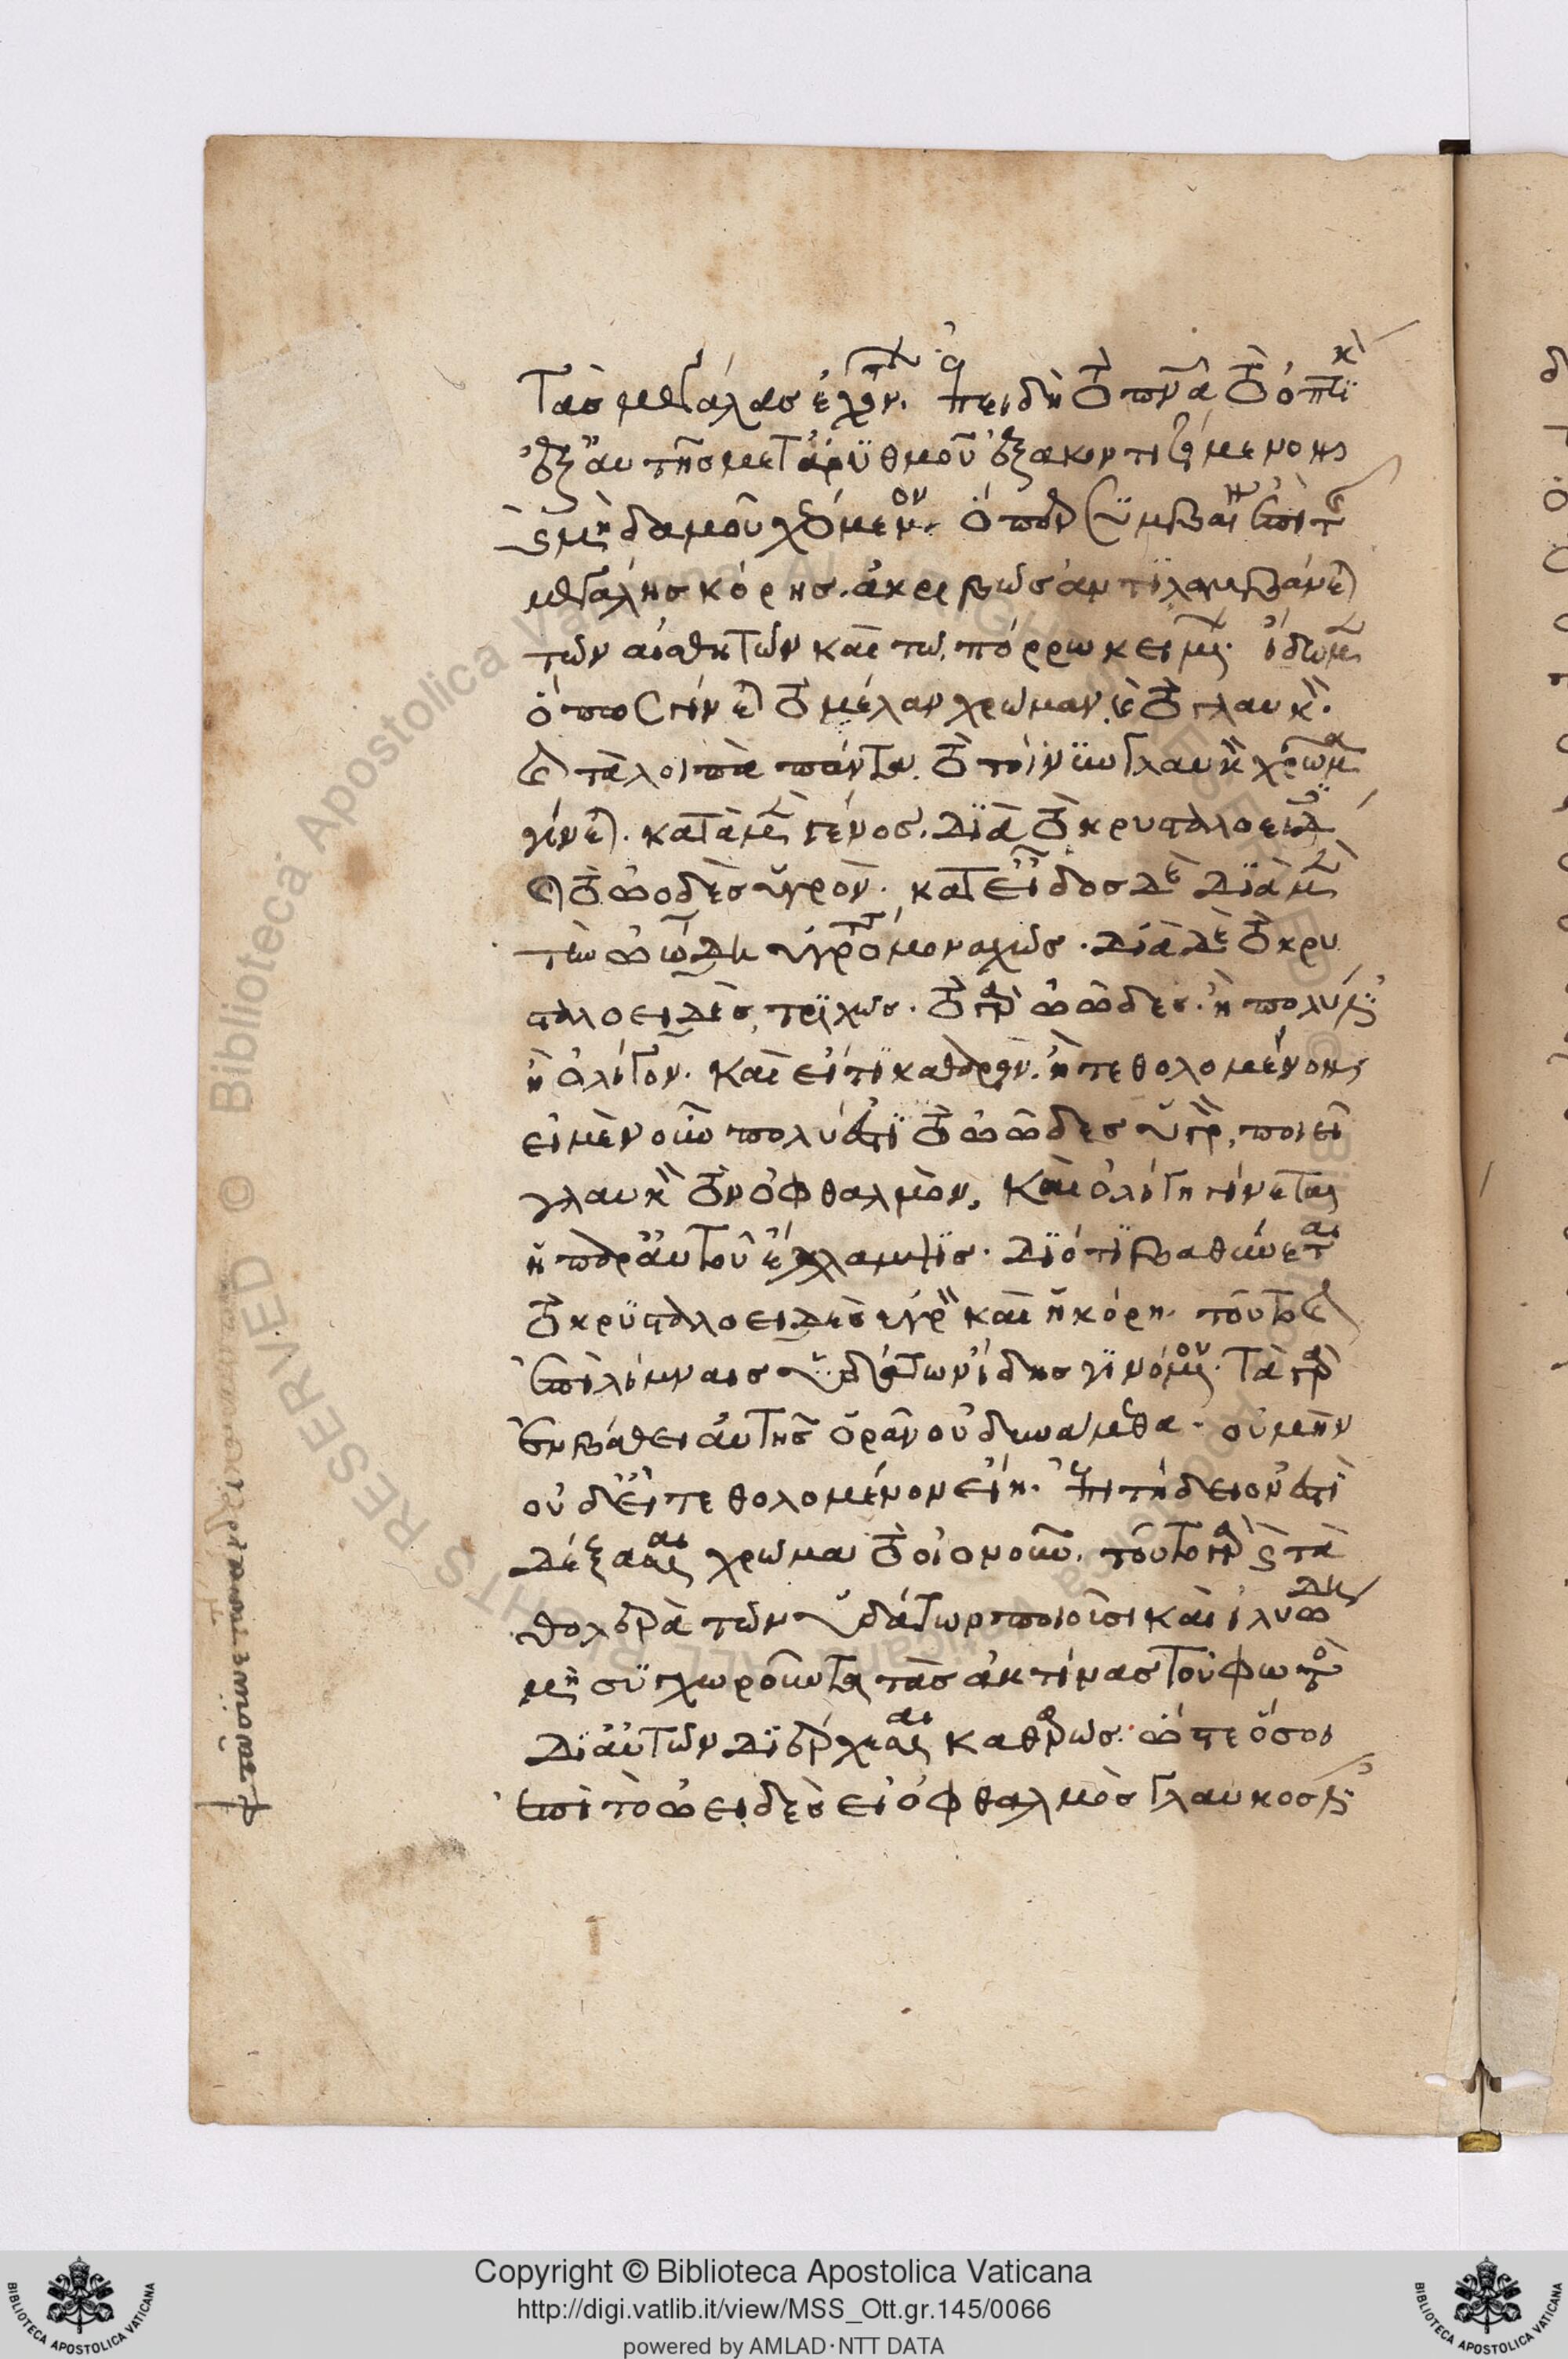 τὰς μεγάλας ἐπειδὴ τὸ πνα τὸ ὀπτι
ἐξ αὐτῆς μετ ἀρϋθμοῦ ἐξακοντιζόμενον
μηδαμοῦ χεόμενον. ὅπερ συμβαίνει ἐπὶ τ
μεγάλης κόρης. ἀκριβῶς ἀντιλαμβάνε
τῶν αἰσθητῶν καὶ τῶ πόρρω κειμέ ἴδωμεν
ὅπως γίνε τὸ μέλαν χρῶμα τὸ γλαυκ.
τὰ λοιπὰ πάντα. τὸ τοίνυν γλαυκ χρῶμα
γίνε. κατὰ μὲν γένος. διὰ τὸ κρυσταλοειδ
τὸ ὠοδὲς ὑγρὸν. κατ εἶδος δὲ διὰ μὲν
τὸ ὠῶδη ὑγρὸ μοναχῶς. διὰ δὲ τὸ κρυ
σταλοειδὲς, τριχῶς. τὸ γὰρ ὠῶδες. ἢ πολύ
ἢ ὀλίγον. καὶ εἴτι καθαρόν. ἢ τεθολομένον
εἰ μὲν οὖν πολύ ἐστι τὸ ὠῶδες ὑγρ, ποιεῖ
γλαυκ τὸν ὀφθαλμὸν, καὶ ὀλίγη γίνεται
ἡ παρ αὐτοῦ ἔκλαμψις. διότι βαθύνεται
τὸ κρυσταλλοειδὲς ὑγρ καὶ ἡ κόρη. τοῦτο
ἐπὶ λίμναις ὑδάτων ἴδης γινόμενον. τὰ γὰρ
ἐν βάθει αὐτῆς ὁρᾶν οὐ δυνάμεθα. οὐ μὴν
οὐδ εἰ τεθολομένον εἴη. ἐπιτήδειον ἐστι
δέξασθαι χρῶμα τὸ οἱονοῦν. τοῦτο γὰρ τὰ
θολερὰ τῶν ὑδάτων ποιοῦσι καὶ ἰλυώδη
μὴ συγχωροῦντα τὰς ἀκτίνας τοῦ φωτὸς
δι αὐτῶν διέρχεσθαι καθαρῶς. ὥστε ὅσοι
ἐπὶ τὸ ὠειδὲς εἰ ὀφθαλμὸς γλαυκός
Copyright © Biblioteca Apostolica Vaticana
http://digi.vatlib.it/view/MSS_Ott.gr.145/0066
powered by AMLAD·NTT DATA
BIBLIOTECA APOSTOLICA VATICANA
BIBLIOTECA APOSTOLICA VATICANA